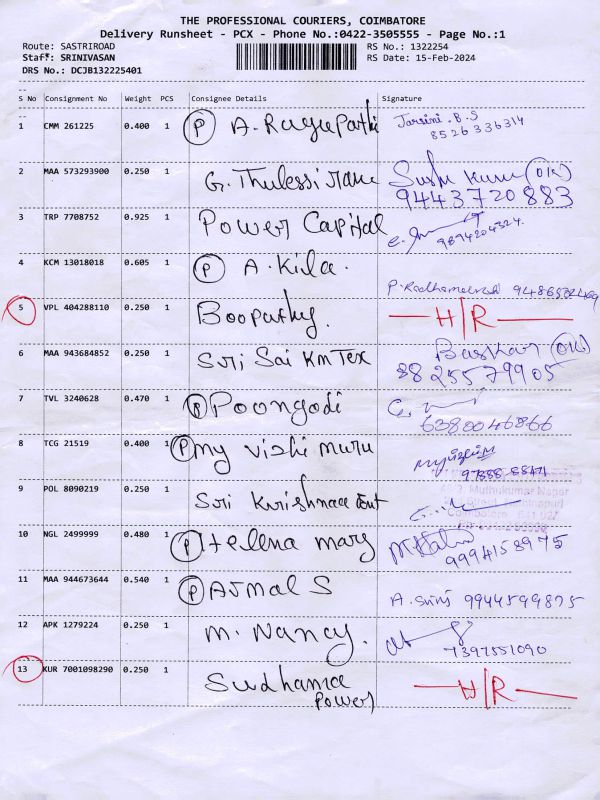 THE PROFESSIONAL COURIERS, COIMBATORE
Delivery Runsheet - PCX - Phone No.:0422-3505555 - Page No.:1
Route: SASTRIROAD
RS No.: 1322254
Staff: SRINIVASAN
RS Date: 15-Feb-2024
DRS No.: DCJB132225401
S No Consignment No Weight PCS Consignee Details Signature
1 CMM 261225 0.400 1 P A. Ragupathi Jarsini.B.S
8526336314
2 MAA 573293900 0.250 1 G. Thulessi rame (OK)
9443720883
3 TRP 7708752 0.925 1 Power Capital
9894204324
4 KCM 13018018 0.605 1 P A. Kila.
P. Radhameena
5 VPL 404288110 0.250 1 Boopathy. H/R
6 MAA 943684852 0.250 1 Sri Sai Km Tex Baskar (OK)
9825579905
7 TVL 3240628 0.470 1 P Poongodi
6380046866
8 TCG 21519 0.400 1 P my vizhi muru
9 POL 8090219 0.250 1 Sri Krishnaa
Muthukumar Nagar
10 NGL 2499999 0.480 1 P Helena mary
9994158975
11 MAA 944673644 0.540 1 P Ajmal S A. Srini 9944599875
12 APK 1279224 0.250 1 M. Nancy.
7397551090
13 KUR 7001098290 0.250 1 Sudhama H/R
Power